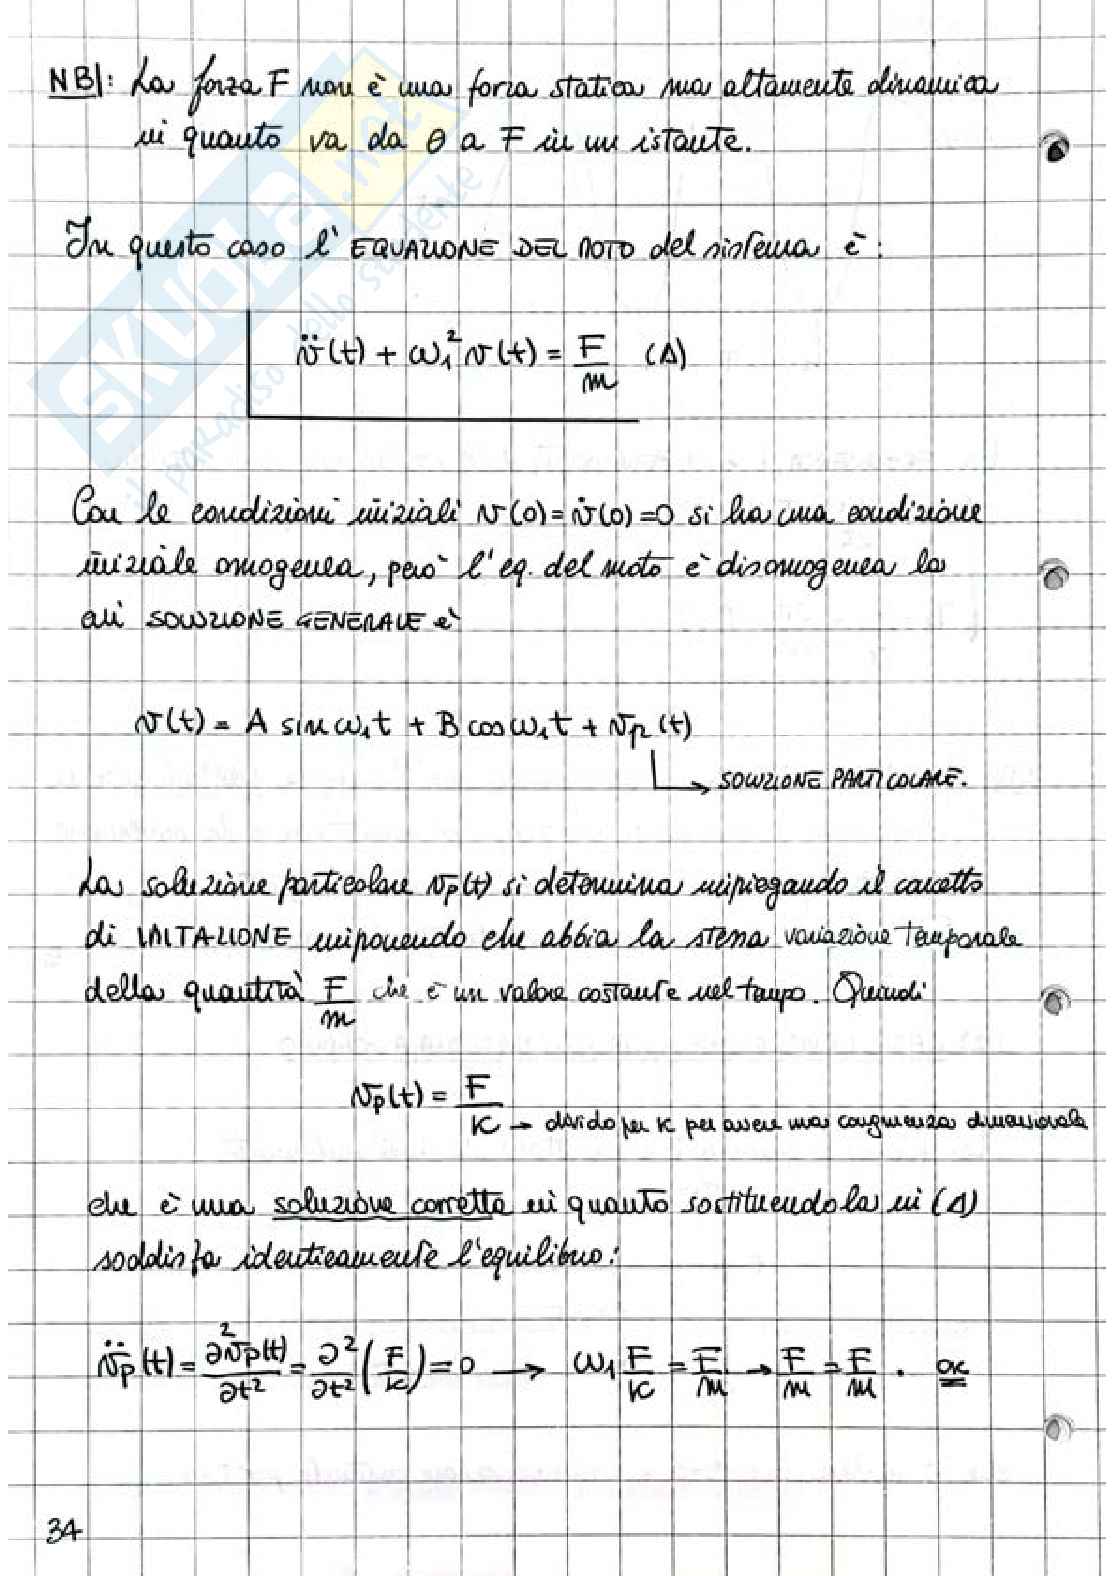 NB|: La forza F non è una forza statica ma altamente dinamica
in quanto va da 0 a F in un istante.
In questo caso l' EQUAZIONE DEL MOTO del sistema è:
v̈(t) + ω₁² v(t) = F/m (Δ)
Con le condizioni iniziali v(0) = v̇(0) = 0 si ha una condizione
iniziale omogenea, però l'eq. del moto è disomogenea la
cui SOLUZIONE GENERALE è
v(t) = A sin ω₁t + B cos ω₁t + vp(t)
↳ SOLUZIONE PARTICOLARE.
La soluzione particolare vp(t) si determina impiegando il concetto
di IMITAZIONE imponendo che abbia la stessa variazione temporale
della quantità F/m che è un valore costante nel tempo. Quindi
vp(t) = F/K → divido per K per avere una congruenza dimensionale
che è una soluzione corretta in quanto sostituendola in (Δ)
soddisfa identicamente l'equilibrio:
v̈p(t) = ∂²vp(t)/∂t² = ∂²/∂t² (F/K) = 0 → ω₁ F/K = F/m → F/m = F/m . OK
34
SKUOLA.net
il paradiso dello studente